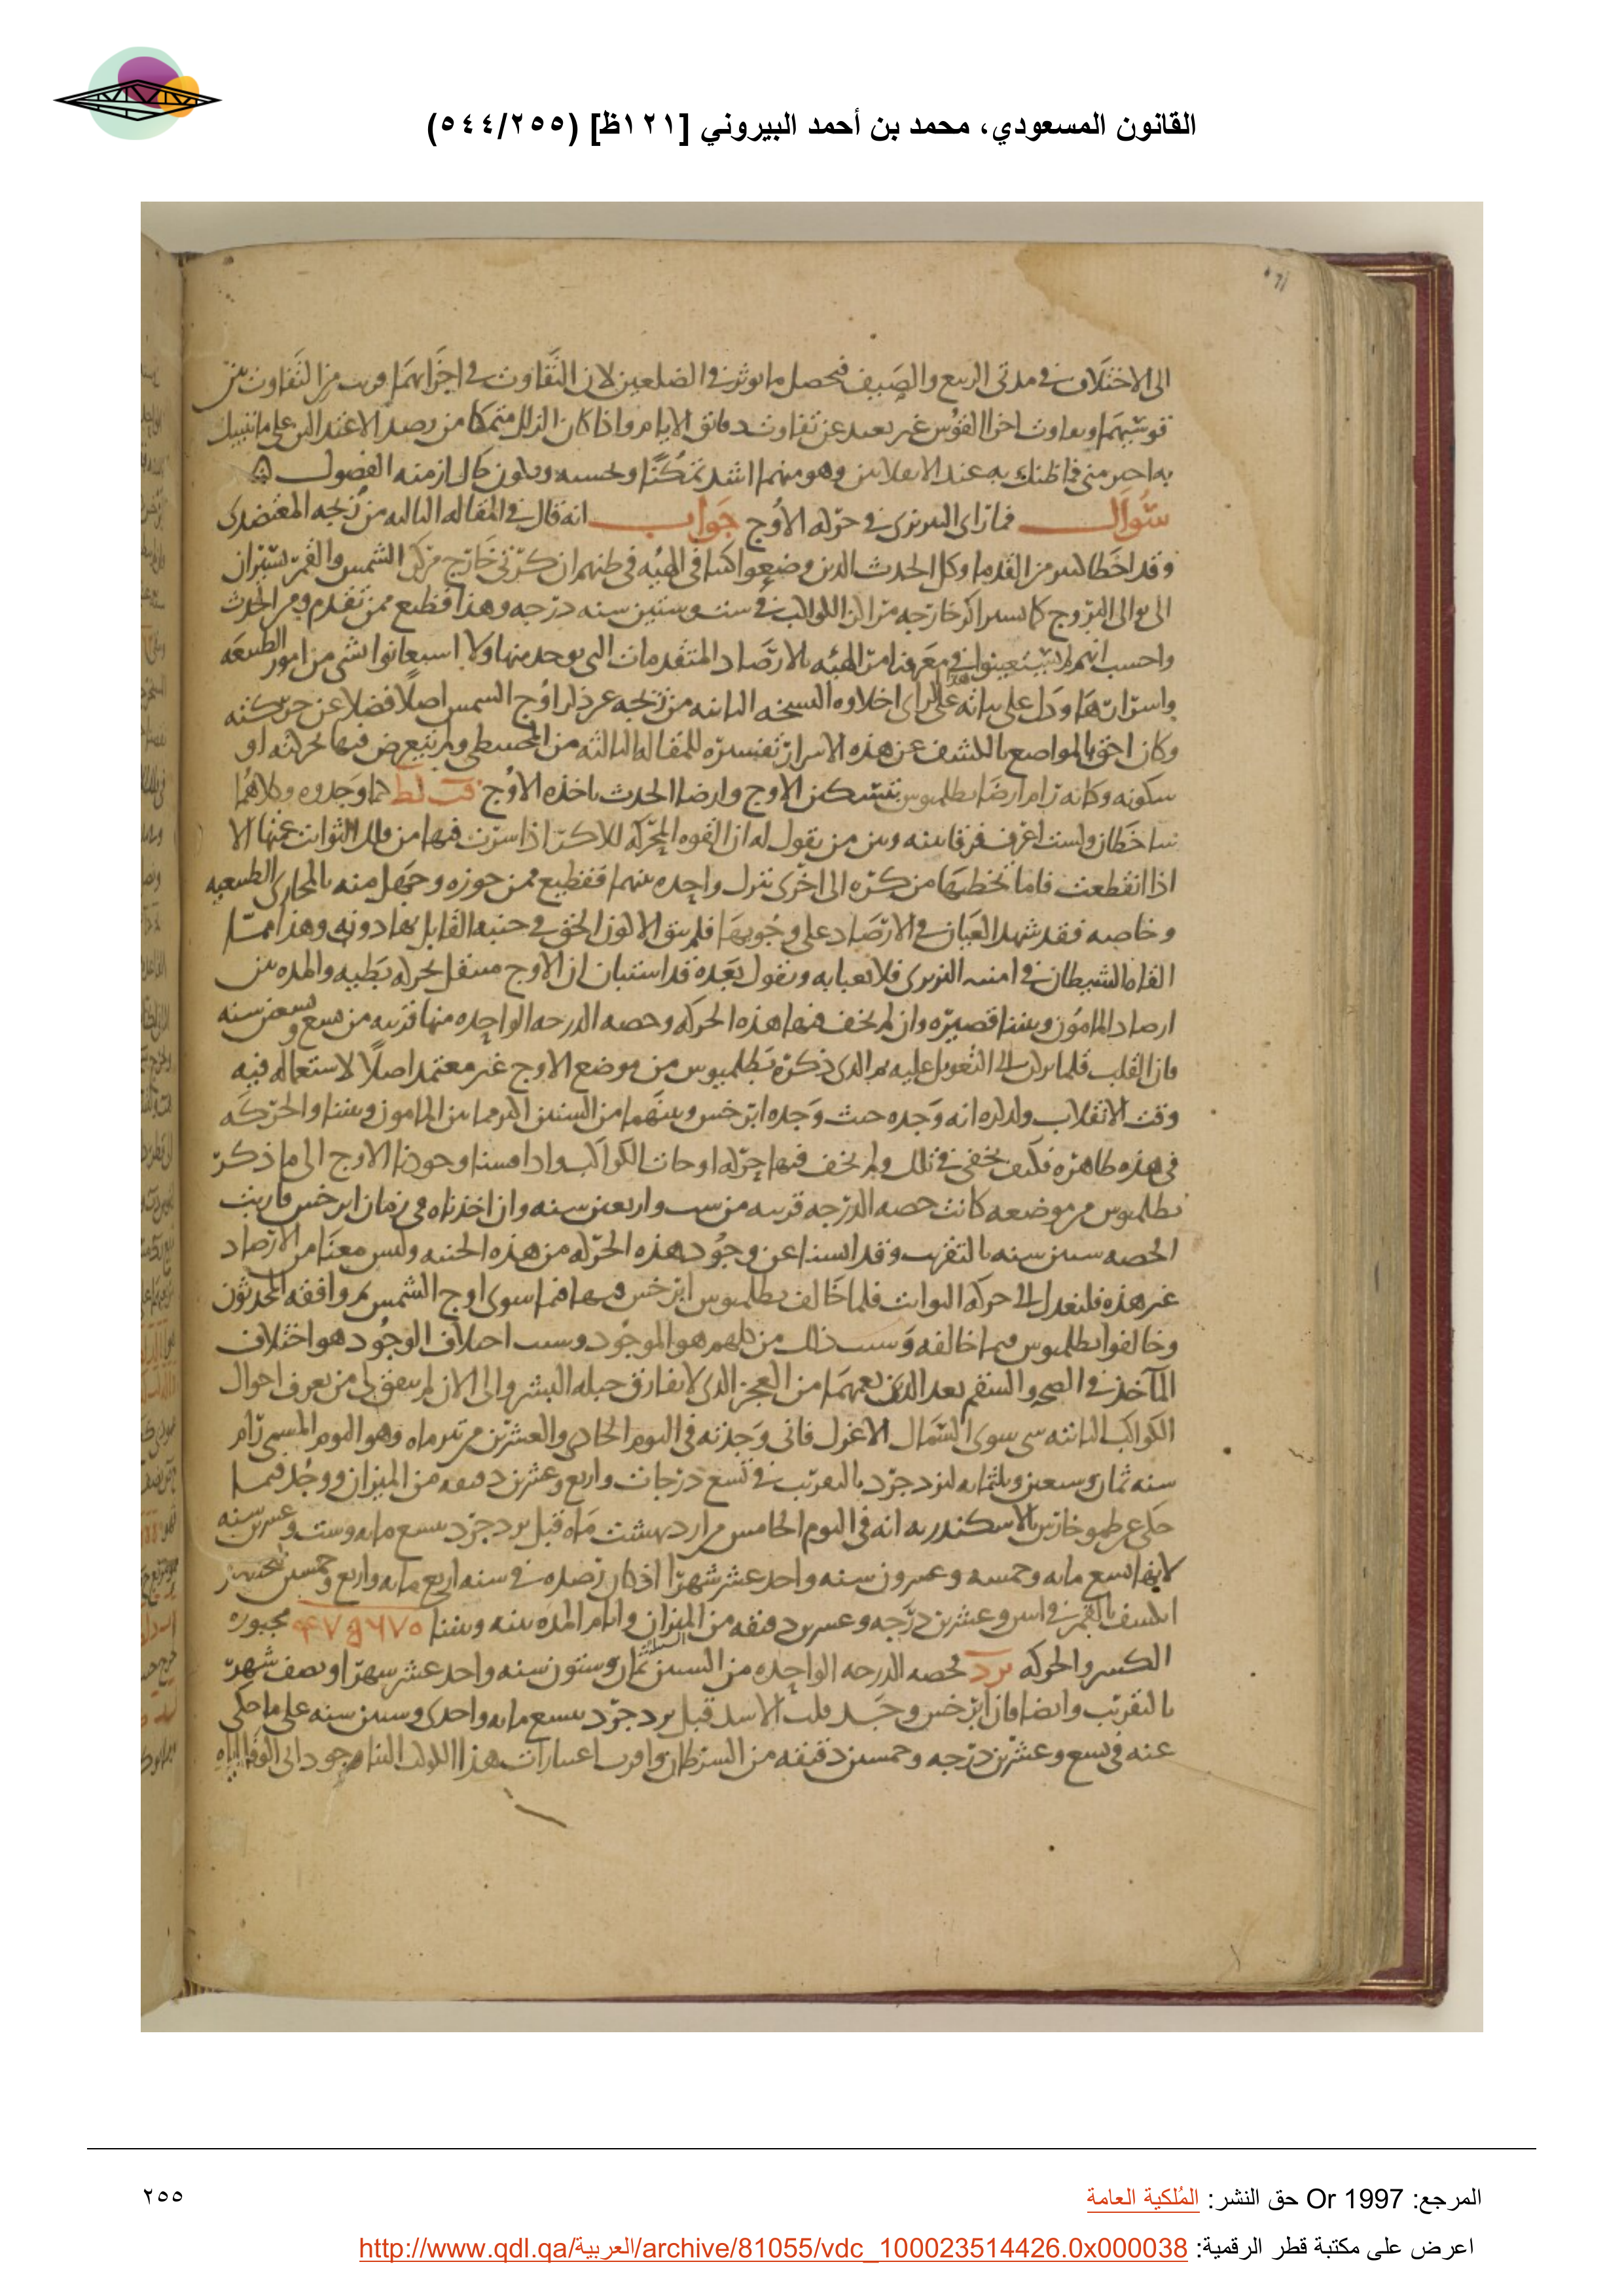 القانون المسعودي، محمد بن أحمد البيروني [١٢١ظ] (٥٤٤/٢٥٥)
الى الاختلاف في مدتى الربيع والصيف فيحصل ما يوثر في الضلعين لان التفاوت في اجزائهما قريب من التفاوت بين
قوسيهما وتفاوت اجزا القوس غير بعيد عن تفاوت دقائق الايام واذا كان الزلل متمكنا من رصد الاعتدالين على ما تبيّنك
به احبر منى فما ظنك به عند الانقلابين وهو منهما اشد تمكنا وبحسبه ويكون حال ازمنه الفصول
سؤال فما راى النيريزى في حركه الاوج جواب انه قال في المقاله الثالثه من زيجه المعتضدى
وقد اخطا كثير من القدما وكل الحدث الذين وضعوا كتبا في الهيئه في ظنهم ان كرتى خارج مركز الشمس والقمر تسيران
الى توالى البروج كما تسير اكر خارجه مراكز الكواكب في ست وستين سنه درجه وهذا فظيع ممن تقدم ومن الحدث
واحسب انهم لم يستعينوا في معرفتنا من الهيئه بالارصاد المتقدمات التى توجد منها ولا استعانوا بشى من امور الطبيعه
واسرارها ودل على ثباته على هذا الراى اخلاوه النسخه الثانيه من زيجه عن ذكر اوج الشمس اصلا فضلا عن حركته
وكان احق المواضع بالكشف عن هذه الاسرار تفسيره للمقاله الثالثه من المجسطى ولم يتعرض فيها لحركته او
سكونه وكانه رام ارضا بطلميوس بتسكين الاوج وارضا الحدث باخذه الاوج فب لط كما وجدوه وكلاهما
ساخطان ولست اعرف فرقا بينه وبين من يقول له ان القوه المحركه للاكر اذا سرت فيها من فلك الثوابت عنها الا
اذا انقطعت فاما تخطيها من كره الى اخرى تنزل واحده بينهما ففظيع ممن جوزه وجهل منه بالمجارى الطبيعيه
وخاصه فقد شهد العيان في الارصاد على وجوبها فلم يبق الا لون الحق في جنبه القايل بها دونه وهذا مما
القاه الشيطان في امنيه النيريزى فلا نعبا به ونقول بعده قد استبان ان الاوج منتقل بحركه بطيه والمده بين
ارصاد المامون وبيننا قصيره وان لم يخف فيها هذه الحركه وحصه الدرجه الواحده منها قريبه من سبع وسبعين سنه
فان القلب قلما يركن الى التعويل عليه ثم الذى ذكره بطلميوس من موضع الاوج غير معتمد اصلا لاستعماله فيه
وقت الانقلاب ولذكره انه وجده حيث وجده ابرخس وبينهما من السنين اكثر مما بين المامون وبيننا والحركه
في هذه ظاهره فكيف تخفى في تلك ولم يخف فيها حركه اوجات الكواكب واذا مسنا وجود الاوج الى ما ذكر
بطلميوس من موضعه كانت حصه الدرجه قريبه من ست واربعين سنه وان اخذناه في زمان ابرخس قاربت
الحصه ستين سنه بالتقريب وقد ايسنا عن وجود هذه الحركه من هذه الجنبه وليس معنا من الارصاد
غير هذه فلنعدل الى حركه الثوابت فلما خالف بطلميوس ابرخس فيها فيما سوى اوج الشمس ثم وافقه المحدثون
وخالفوا بطلميوس فيما خالفه وسبب ذلك من كلهم هو الموجود وسبب اختلاف الوجود هو اختلاف
المآخذ في الصحه والسقم بعد الذين يعمهما من العجز الذى لا يفارق جبله البشر والى الان لم يتفق لى من تعرف احوال
الكواكب الثابته شى سوى السماك الاعزل فانى وجدته في اليوم الحادى والعشرين من تير ماه وهو اليوم المسمى رام
سنه ثمان وسبعين وثلثمايه ليزدجرد بالتقريب في تسع درجات واربع وعشرين دقيقه من الميزان ووجد فيما
حكى عن طيموخارس بالاسكندريه انه في اليوم الخامس من ارديبهشت ماه قبل يزدجرد بتسع مايه وست وعشرين سنه
لانها تسع مايه وخمسه وعشرون سنه واحد عشر شهرا اذ كان رصده في سنه اربع مايه واربع وخمسين لبختنصر
انكسف بالقمر في اثنين وعشرين درجه وعشرين دقيقه من الميزان وايام المده بينه وبيننا ٤٧٥٩٦٧٥ مجبوره
الكسر والحركه يرد لحصه الدرجه الواحده من السنين ثمان وستون سنه واحد عشر شهرا ونصف شهر
بالتقريب وايضا فان ابرخس وجد قلب الاسد قبل يزدجرد بسبع مايه واحدى وستين سنه على ما حكى
عنه في تسع وعشرين درجه وخمسين دقيقه من السرطان واقرب اعتبارات هذا الكوكب الينا موجود ابى الوفا اياه
المرجع: Or 1997 حق النشر: المُلكية العامة
٢٥٥
اعرض على مكتبة قطر الرقمية: http://www.qdl.qa/العربية/archive/81055/vdc_100023514426.0x000038